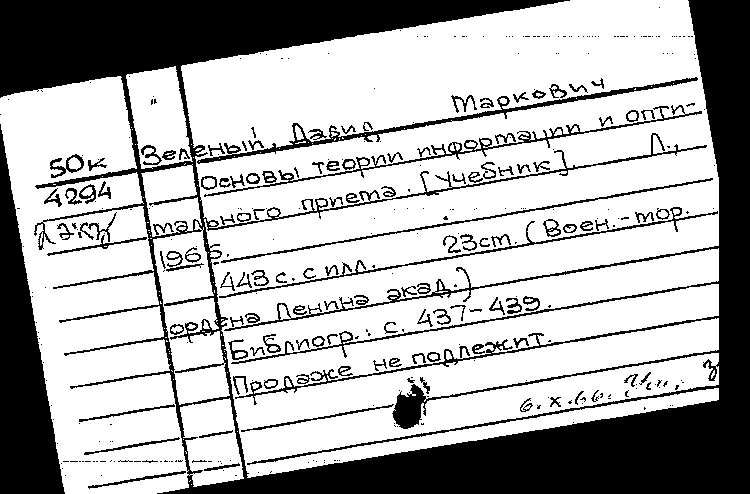 50к Зеленый, Давид Маркович
4294 Основы теории информации и опти-
2 экз мального приема. [Учебник]. Л.,
1965.
443 с. с илл. 23см. (Воен.-мор.
ордена Ленина акад.)
Библиогр.: с. 437-439.
Продаже не подлежит.
6.X.66.